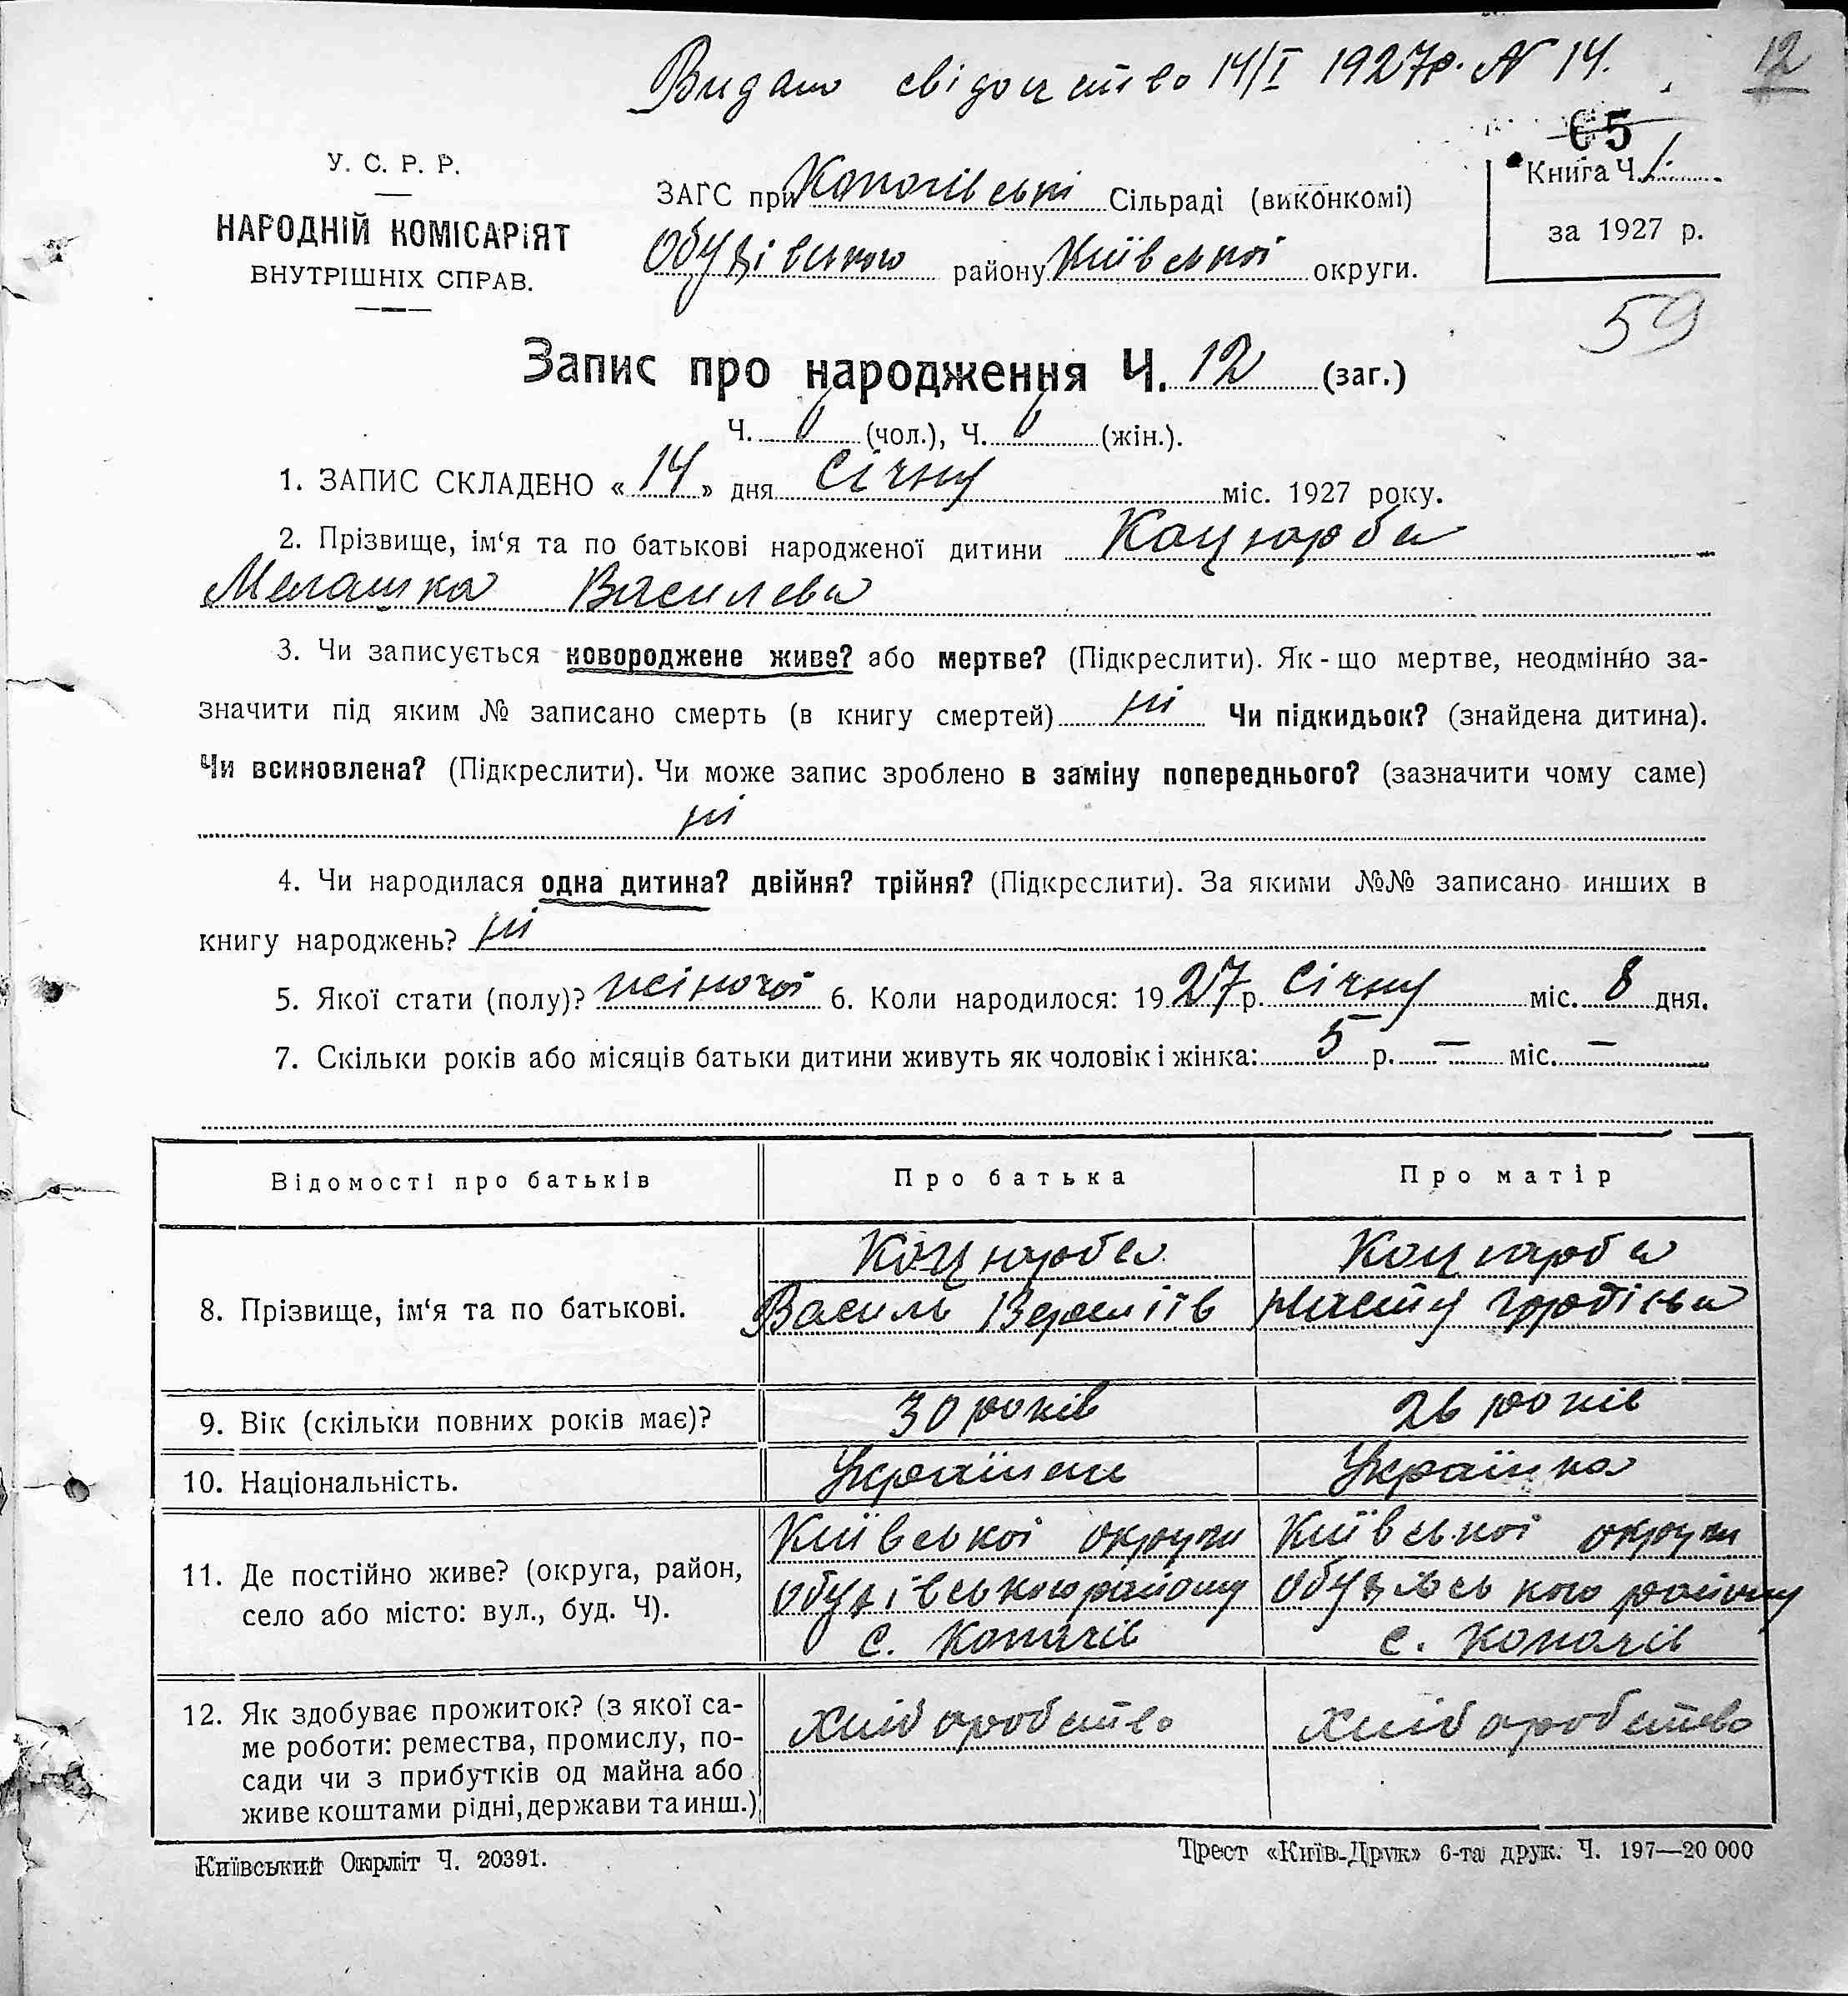 Видано свідоцтво 14/I 1927р. N 14.
12
65
У. С. Р. Р.
НАРОДНІЙ КОМІСАРІЯТ
ВНУТРІШНІХ СПРАВ.
ЗАГС при Копачівські Сільраді (виконкомі)
Обухівського району Київської округи.
Книга Ч. 1.
за 1927 р.
59
Запис про народження Ч. 12 (заг.)
Ч. 6 (чол.), Ч. 6 (жін.).
1. ЗАПИС СКЛАДЕНО « 14 » дня Січня міс. 1927 року.
2. Прізвище, ім‘я та по батькові народженої дитини Коцюрба
Мелашка Василева
3. Чи записується новороджене живе? або мертве? (Підкреслити). Як-що мертве, неодмінно за-
значити під яким № записано смерть (в книгу смертей) ні Чи підкидьок? (знайдена дитина).
Чи всиновлена? (Підкреслити). Чи може запис зроблено в заміну попереднього? (зазначити чому саме)
ні
4. Чи народилася одна дитина? двійня? трійня? (Підкреслити). За якими №№ записано инших в
книгу народжень? ні
5. Якої стати (полу)? жіночої 6. Коли народилося: 1927 р. Січня міс. 8 дня.
7. Скільки років або місяців батьки дитини живуть як чоловік і жінка: 5 р. — міс. —
Відомості про батьків Про батька Про матір
Коцюрба Коцюрба
8. Прізвище, ім‘я та по батькові. Василь Настя
9. Вік (скільки повних років має)? 30 років 26 років
10. Національність. Українець Українка
Київської округи Київської округи
11. Де постійно живе? (округа, район, Обухівського району Обухівського району
село або місто: вул., буд. Ч). с. Копачів с. Копачів
12. Як здобуває прожиток? (з якої са- хліборобство хліборобство
ме роботи: ремества, промислу, по-
сади чи з прибутків од майна або
живе коштами рідні, держави та инш.)
Київський Окрліт Ч. 20391.
Трест «Київ-Друк» 6-та друк. Ч. 197—20 000